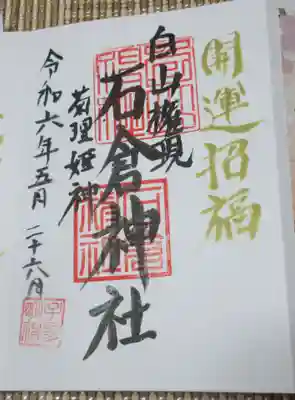 開運招福
白山権現
石倉神社
菊理姫神
令和六年五月二十六日